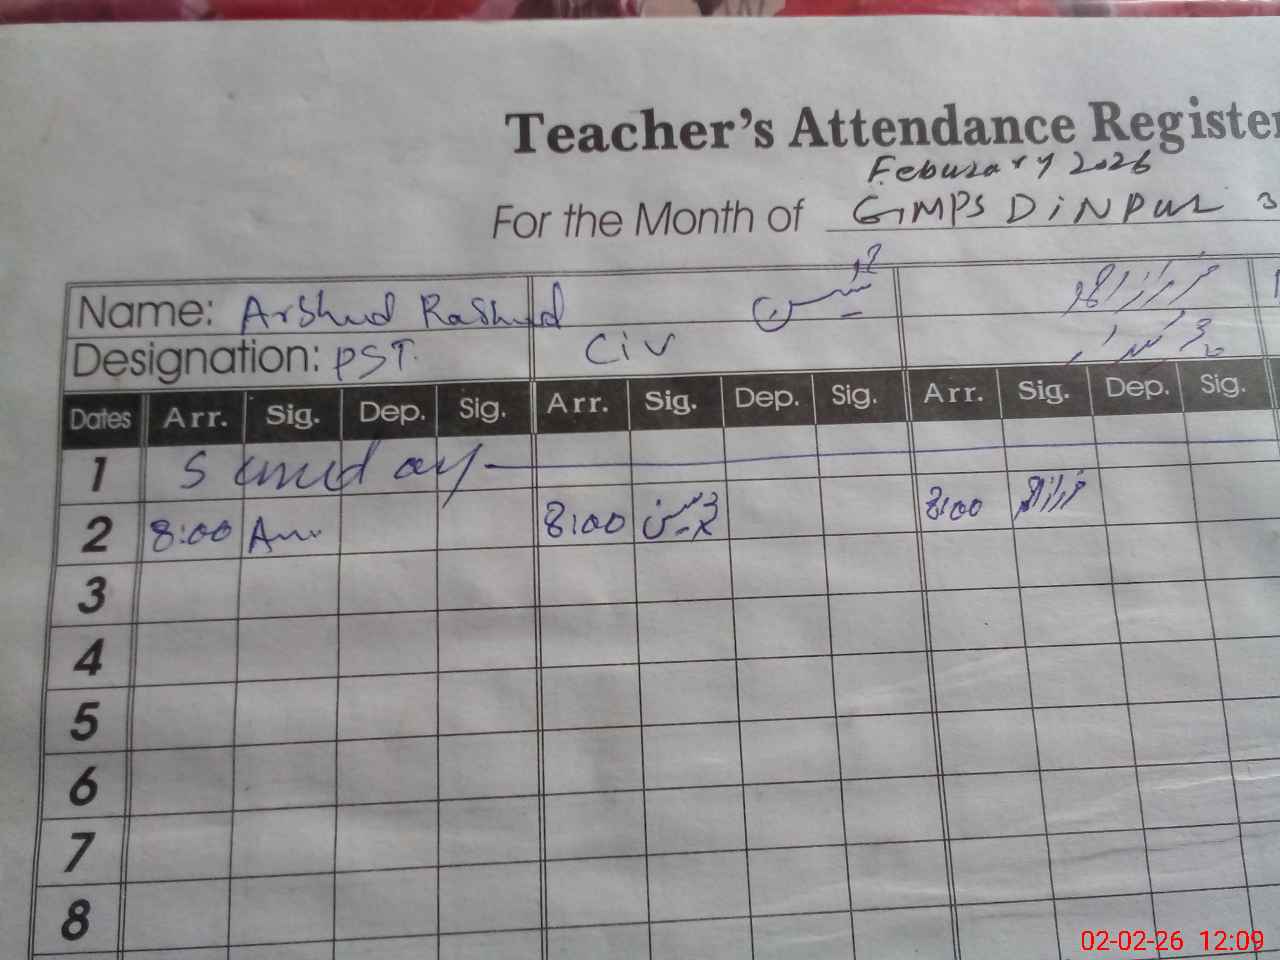 Teacher's Attendance Register
Feburary 2026
For the Month of GMPS DINPUR 3
Name: Arshud Rashid
Designation: PST. Civ
Dates Arr. Sig. Dep. Sig. Arr. Sig. Dep. Sig. Arr. Sig. Dep. Sig.
1 Sunday
2 8:00 8:00 8:00
3
4
5
6
7
8
02-02-26 12:09